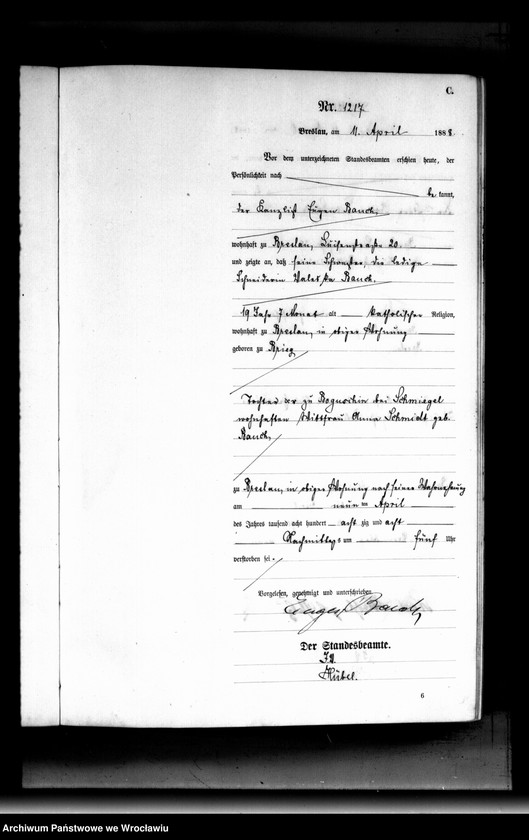 C.
Nr. 1217
Breslau, am 11. April 1888
Vor dem unterzeichneten Standesbeamten erschien heute, der
Persönlichkeit nach
be kannt,
der Kanzlist Eugen Bauch,
wohnhaft zu Breslau, Luisenstraße 20.
und zeigte an, daß seine Schwester, die ledige
Schneiderin Valeska Bauch,
19 Jahr 7 Monat alt katholischer Religion,
wohnhaft zu Breslau, in obiger Wohnung
geboren zu Brieg,
Tochter der zu Boguschin bei Schmiegel
wohnhaften Wittfrau Anna Schmidt geb.
Bauch,
zu Breslau, in obiger Wohnung nach seiner Wahrnehmung
am neunten April
des Jahres tausend acht hundert acht zig und acht
Nachmittags um fünf Uhr
verstorben sei.
Vorgelesen, genehmigt und unterschrieben
Eugen Bauch
Der Standesbeamte.
Hübel.
6
Archiwum Państwowe we Wrocławiu